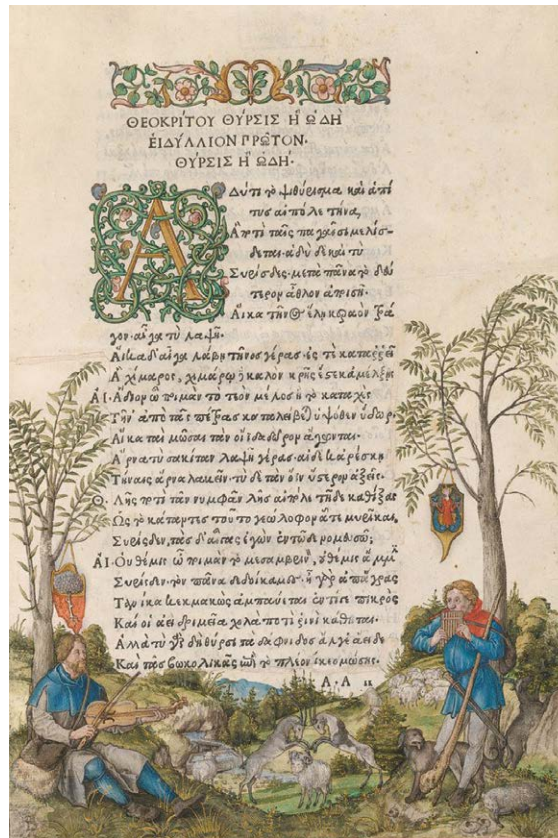 ΘΕΟΚΡΙΤΟΥ ΘΥΡΣΙΣ Ἢ ᾨΔΗ
ΕΙΔΥΛΛΙΟΝ ΠΡΩΤΟΝ.
ΘΥΡΣΙΣ Ἢ ᾨΔΗ.
Α
Δύ τι τὸ ψιθύρισμα καὶ ἁ πί
τυς αἰπόλε τήνα,
Ἃ ποτὶ ταῖς παγαῖσι μελίσ-
δεται. ἁδὺ δὲ καὶ τὺ
Συρίσδες. μετὰ πᾶνα τὸ δεύ
τερον ἆθλον ἀποισῇ.
Αἴκα τῆνος ἕλῃ κεραὸν τρά
γον. αἶγα τὺ λαψῇ.
Αἴκα δ' αἶγα λάβῃ τῆνος γέρας. ἐς τὲ καταῤῥεῖ
Ἁ χίμαρος, χιμάρῳ καλὸν κρῆς ἔς τε κ' ἀμέλξῃς
ΑΙ. Ἅδιον ὦ ποιμὰν τὸ τεὸν μέλος ἢ τὸ καταχὲς
Τῆν' ἀπὸ τᾶς πέτρας καταλείβεται ὑψόθεν ὕδωρ.
Αἴκα ταὶ μῶσαι τὰν οἴιδα δῶρον ἄγωνται.
Ἄρνα τὺ σακίταν λαψῇ γέρας. αἰ δέ κ' ἀρέσκῃ
Τήναις ἄρνα λαβεῖν. τὺ δὲ τὰν ὄϊν ὕστερον ἀξεῖς.
Θ. Λῇς ποτὶ τᾶν νυμφᾶν λῇς αἰπόλε τῇδε καθίξας
Ὡς τὸ κάταντες τοῦτο γεώλοφον ᾇτε μυρῖκαι,
Συρίσδεν, τὰς δ' αἶγας ἐγὼν ἐν τῷδε νομευσῶ;
ΑΙ. Οὐ θέμις ὦ ποιμὰν τὸ μεσαμβρινὸν, οὐ θέμις ἄμμιν
Συρίσδεν. τὸν πᾶνα δεδοίκαμες. ἦ γὰρ ἀπ' ἄγρας
Τανίκα κεκμακὼς ἀμπαύεται ἐντί γε πικρὸς
Καί οἱ ἀεὶ δριμεῖα χολὰ ποτὶ ῥινὶ κάθηται.
Ἀλλὰ τὺ γὰρ δὴ θύρσι τὰ δάφνιδος ἄλγε' ἄειδες
Καὶ τᾶς βωκολικᾶς ἐπὶ τὸ πλέον ἵκεο μώσης.
Α.Α ιι